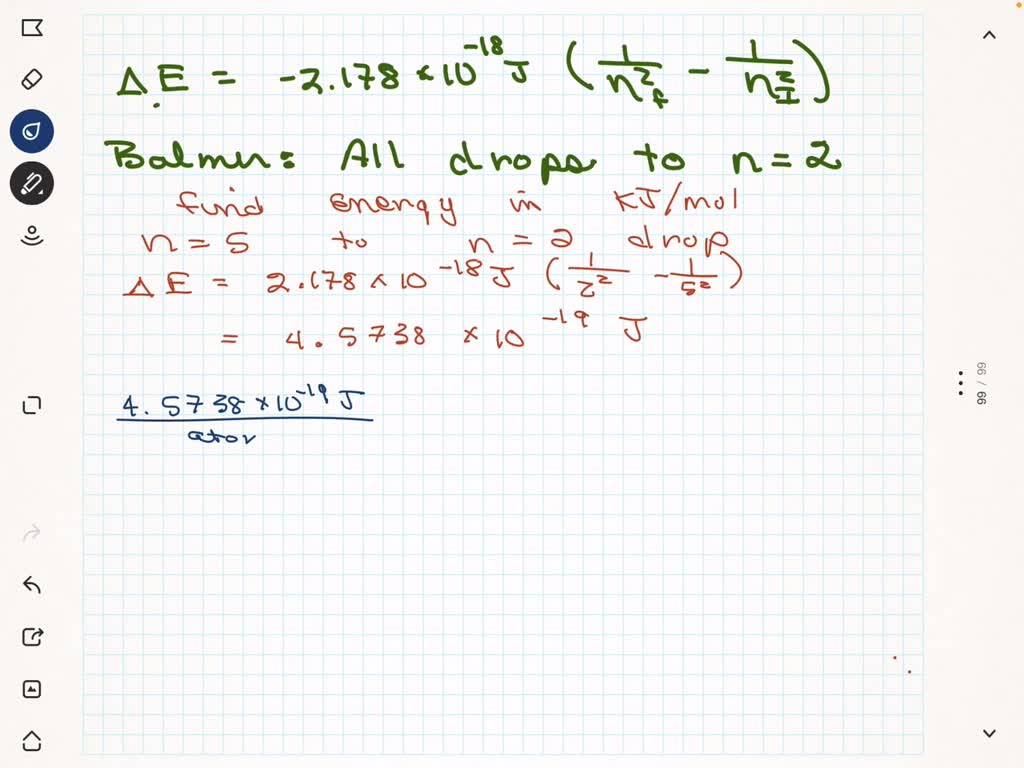 ΔE = -2.178 × 10^-18 J (1/n_f^2 - 1/n_I^2)
Balmer: All drops to n = 2
find energy in KJ/mol
n = 5 to n = 2 drop
ΔE = 2.178 × 10^-18 J (1/2^2 - 1/5^2)
= 4.5738 × 10^-19 J
4.5738 × 10^-19 J
ato
66 / 66